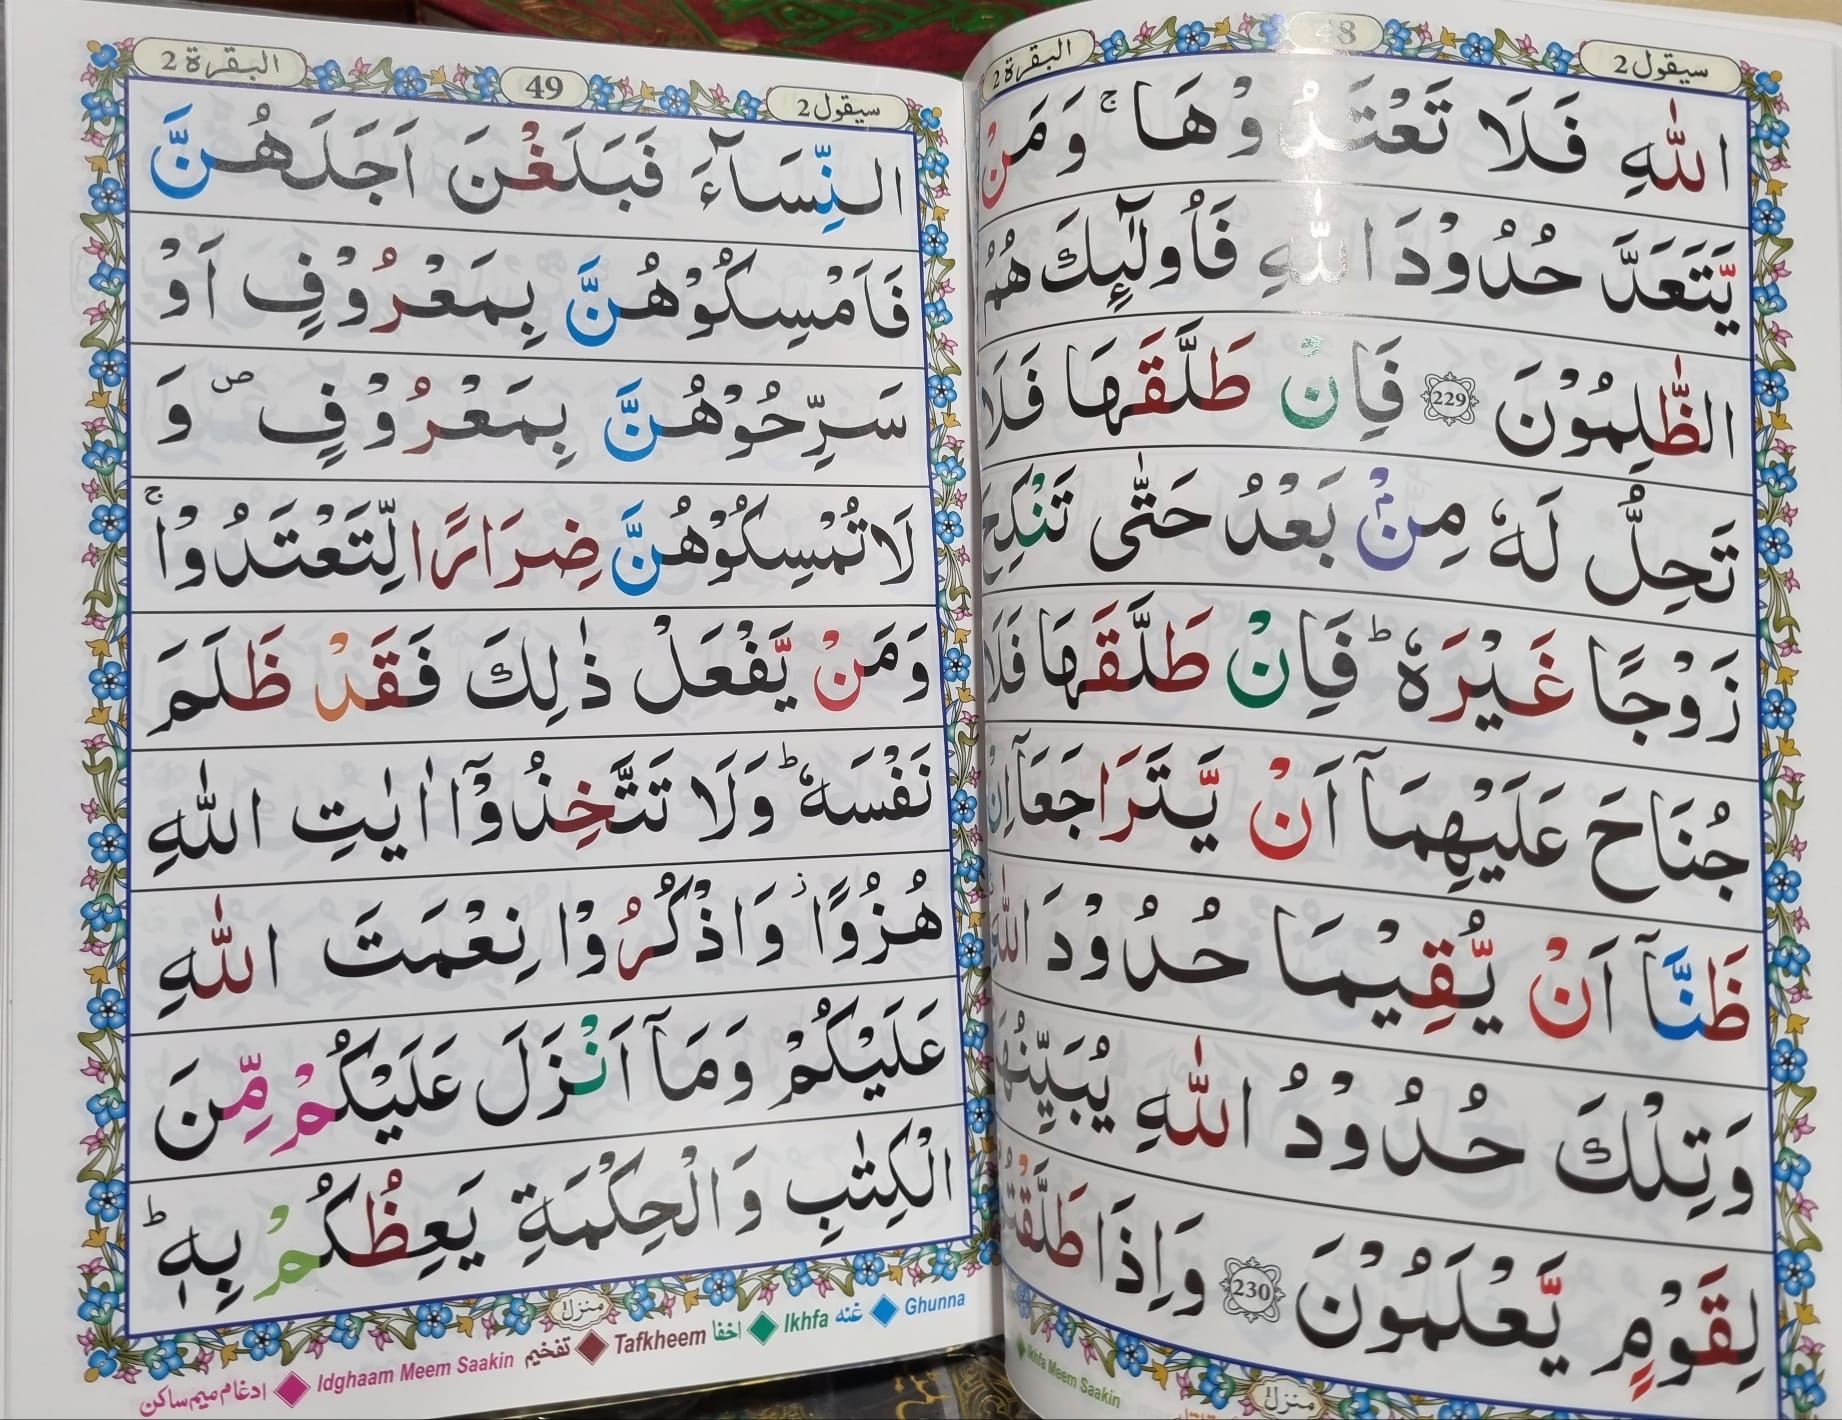 سيقول 2
48
البقرة 2
اللّٰهِ فَلَا تَعْتَدُوْهَا ۚ وَمَنْ
يَّتَعَدَّ حُدُوْدَ اللّٰهِ فَاُولٰٓئِكَ هُمُ
الظّٰلِمُوْنَ 229 فَاِنْ طَلَّقَهَا فَلَا
تَحِلُّ لَهٗ مِنْۢ بَعْدُ حَتّٰى تَنْكِحَ
زَوْجًا غَيْرَهٗ ؕ فَاِنْ طَلَّقَهَا فَلَا
جُنَاحَ عَلَيْهِمَاۤ اَنْ يَّتَرَاجَعَاۤ اِنْ
ظَنَّاۤ اَنْ يُّقِيْمَا حُدُوْدَ اللّٰهِ
وَتِلْكَ حُدُوْدُ اللّٰهِ يُبَيِّنُهَا
لِقَوْمٍ يَّعْلَمُوْنَ 230 وَاِذَا طَلَّقْتُمُ
منزل ۱
Ikhfa Meem Saakin
سيقول 2
49
البقرة 2
النِّسَآءَ فَبَلَغْنَ اَجَلَهُنَّ
فَاَمْسِكُوْهُنَّ بِمَعْرُوْفٍ اَوْ
سَرِّحُوْهُنَّ بِمَعْرُوْفٍ ۪ وَ
لَا تُمْسِكُوْهُنَّ ضِرَارًا لِّتَعْتَدُوْا ۚ
وَمَنْ يَّفْعَلْ ذٰلِكَ فَقَدْ ظَلَمَ
نَفْسَهٗ ؕ وَلَا تَتَّخِذُوْۤا اٰيٰتِ اللّٰهِ
هُزُوًا ؗ وَاذْكُرُوْا نِعْمَتَ اللّٰهِ
عَلَيْكُمْ وَمَاۤ اَنْزَلَ عَلَيْكُمْ مِّنَ
الْكِتٰبِ وَالْحِكْمَةِ يَعِظُكُمْ بِهٖ ؕ
منزل ۱
Ghunna غنه Ikhfa اخفا Tafkheem تفخيم Idghaam Meem Saakin ادغام ميم ساكن